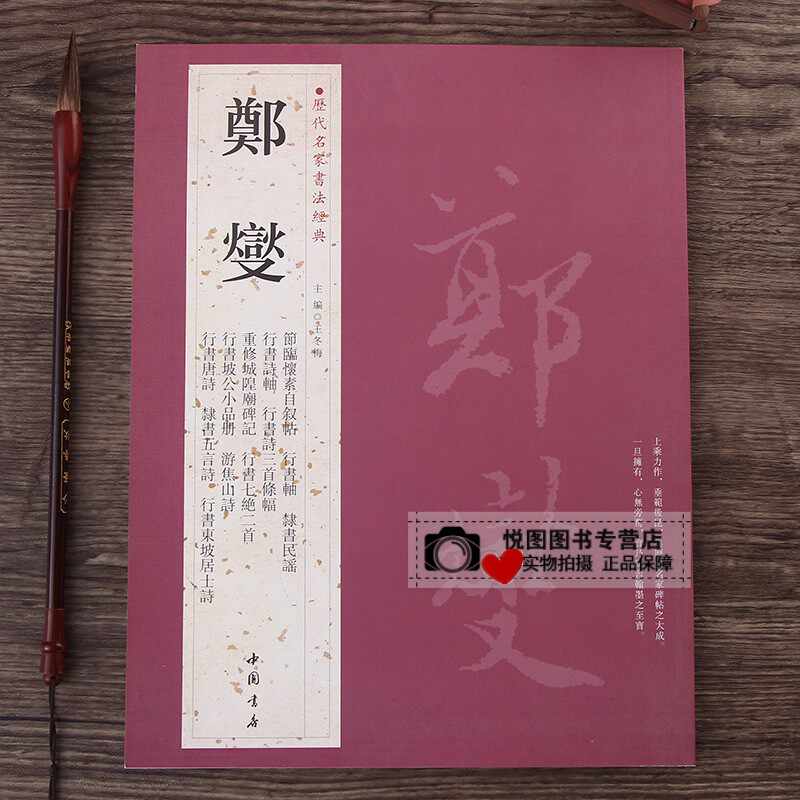 歷代名家書法經典
主編◎王冬梅
鄭燮
節臨懷素自叙帖 行書軸 隸書民謡
行書詩軸 行書詩三首條幅
重修城隍廟碑記 行書七絶二首
行書坡公小品册 游焦山詩
行書唐詩 隸書五言詩 行書東坡居士詩
中國書店
鄭燮
上乘力作，垂範後昆，名家碑帖之大成。
一旦擁有，心無旁 翰墨之至寶
悦图图书专营店
实物拍摄 正品保障